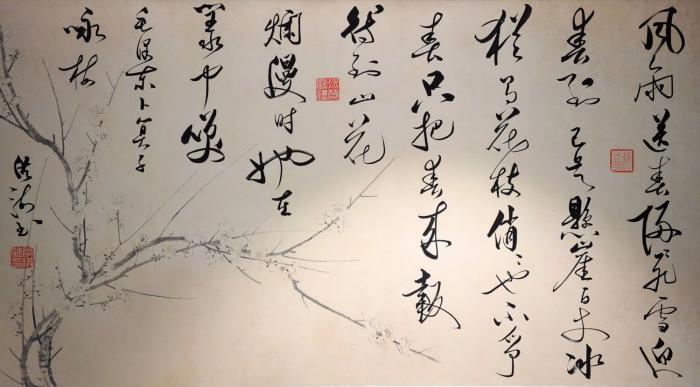 风雨送春归飞雪迎
春到已是懸崖百丈冰
犹有花枝俏俏也不争
春只把春来報
待到山花
爛漫时她在
丛中笑
毛泽东卜算子
咏梅